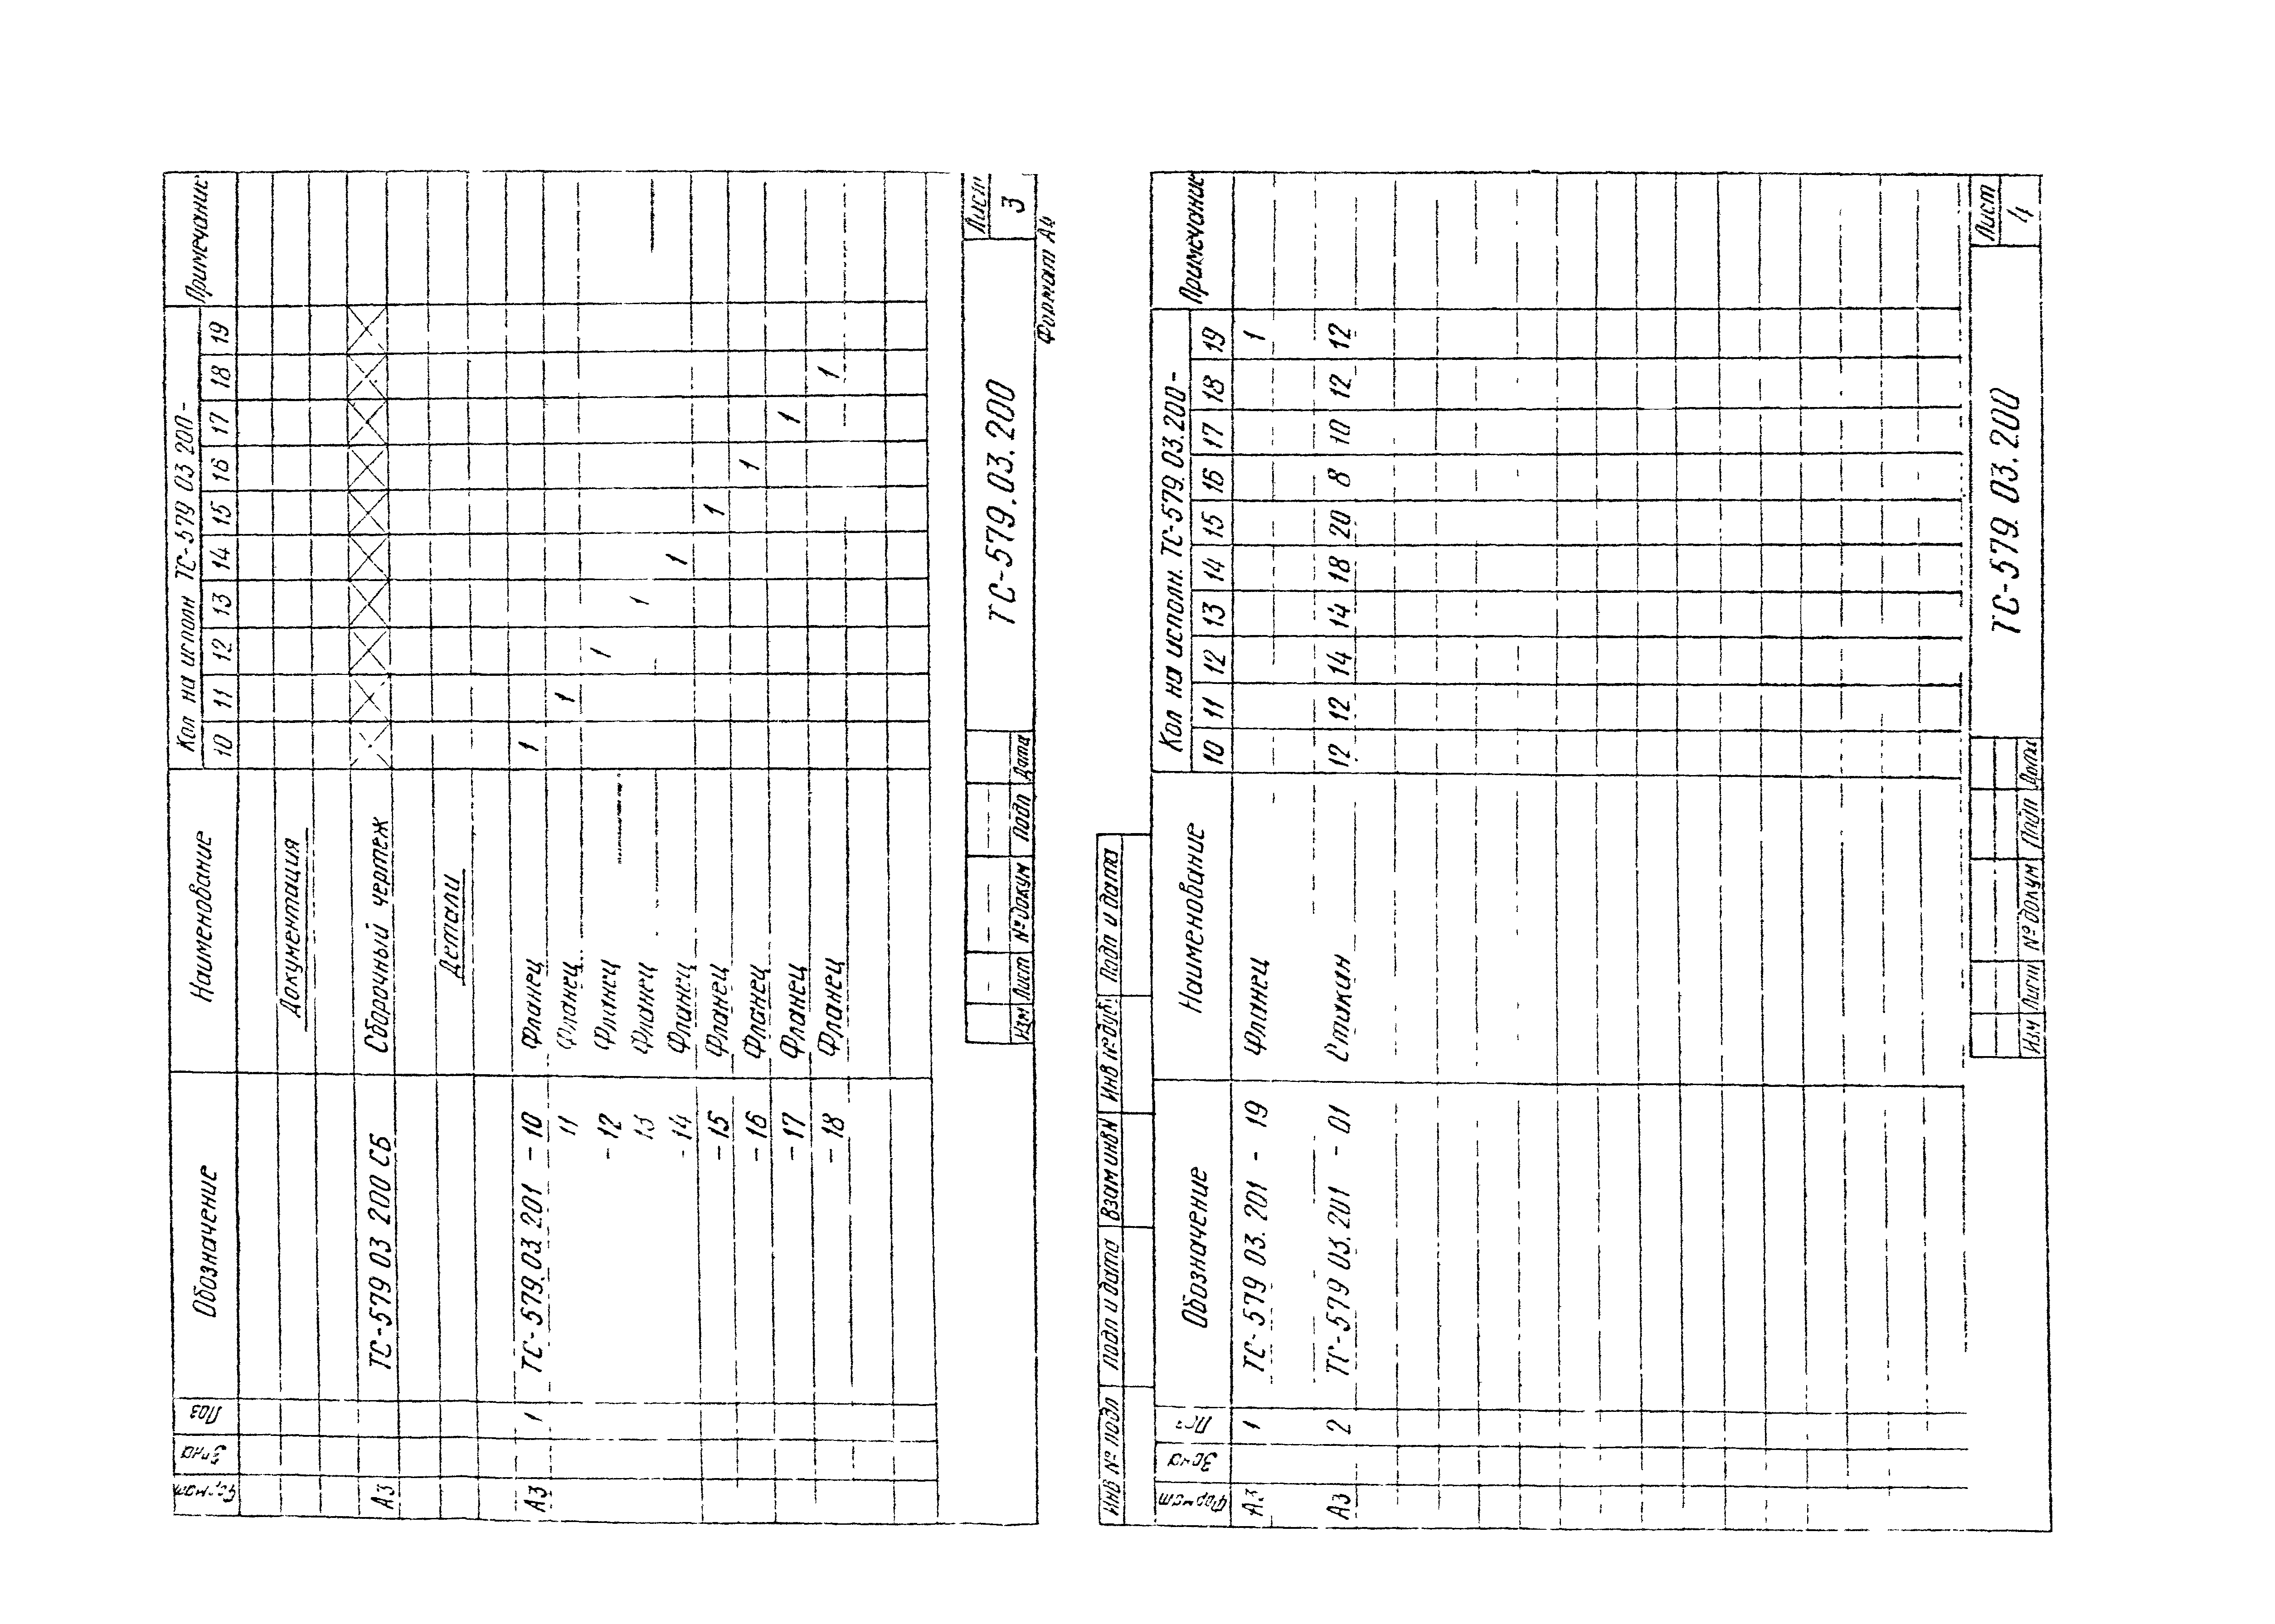 Формат Зона Поз Обозначение Наименование Кол на исполн ТС-579 03 200 - Примечание
10 11 12 13 14 15 16 17 18 19
Документация
А3 ТС-579 03 200 СБ Сборочный чертеж
Детали
А3 1 ТС-579.03.201 - 10 Фланец 1
11 Фланец 1
- 12 Фланец 1
13 Фланец 1
- 14 Фланец 1
- 15 Фланец 1
- 16 Фланец 1
- 17 Фланец 1
- 18 Фланец 1
Изм Лист № докум Подп Дата
ТС-579.03.200
Лист
3
Формат А4
Инв № подл Подп и дата Взам инв № Инв № дуб. Подп и дата
Формат Зона Поз Обозначение Наименование Кол на исполн. ТС-579.03.200 - Примечание
10 11 12 13 14 15 16 17 18 19
А3 1 ТС-579 03.201 - 19 Фланец 1
А3 2 ТС-579 03.201 - 01 Стакан 12 12 14 14 18 20 8 10 12 12
Изм Лист № докум Подп Дата
ТС-579.03.200
Лист
4